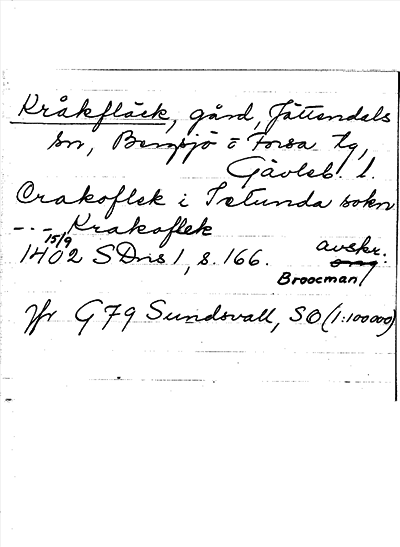 Kråkfläck, gård, Jättendals
sn, Bergsjö o Forsa tg,
Gävleb. l.
Crakoflek i Istunda sokn
- " - , Krakoflek
15/9
1402 SDns 1, s. 166. avskr.
Broocman/
Jfr G79 Sundsvall, SO (1:100000)